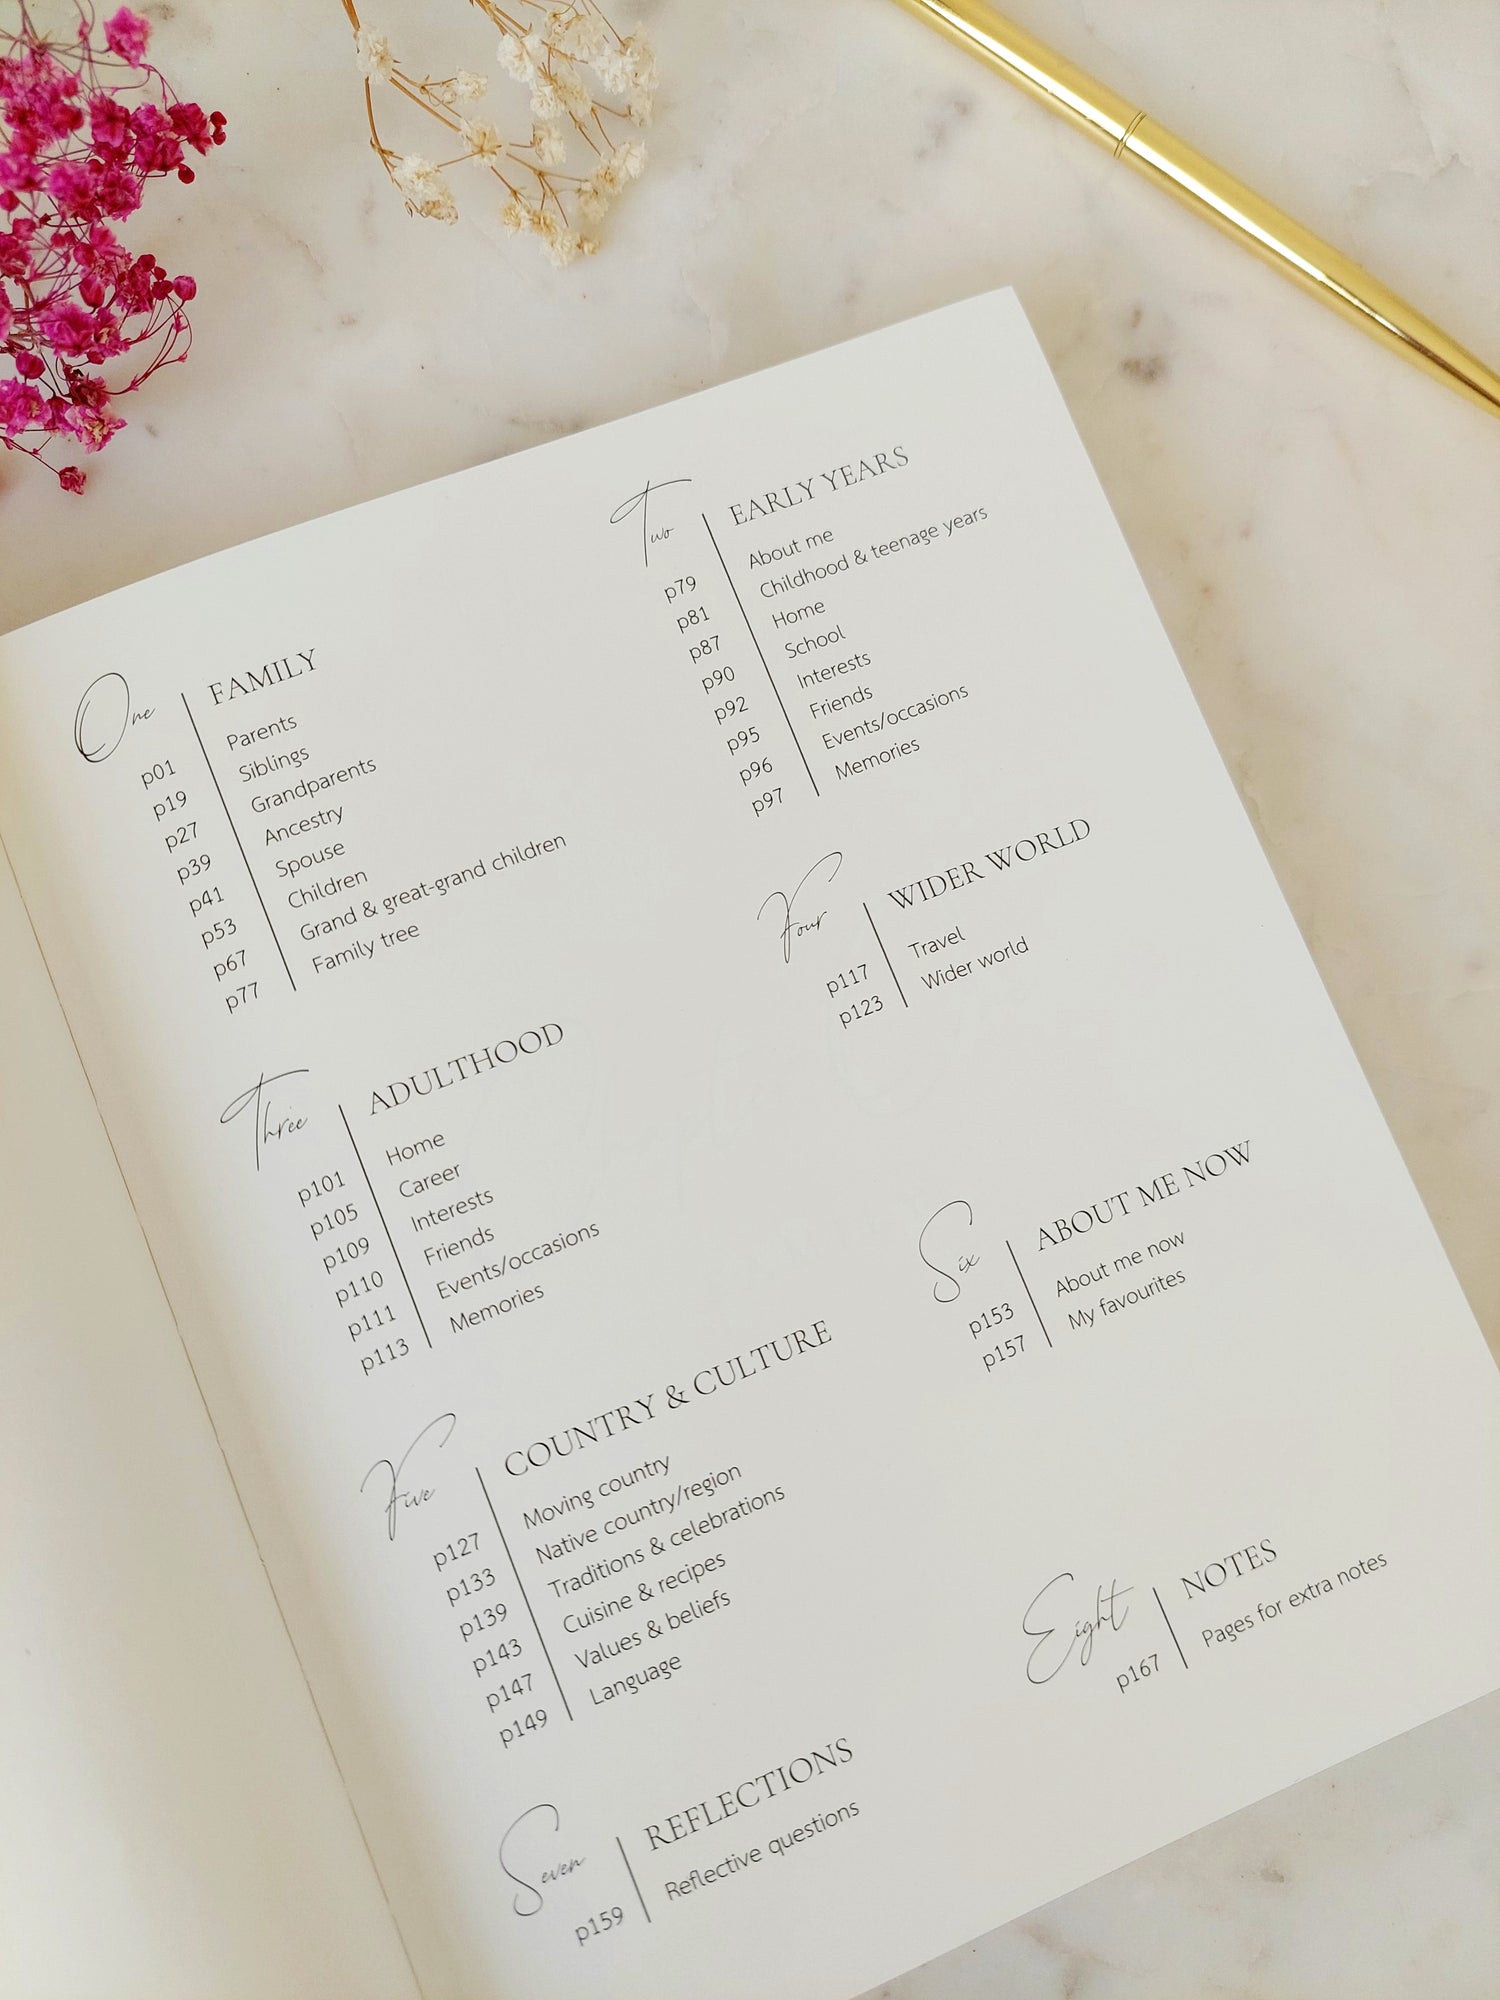 One | FAMILY
p01 Parents
p19 Siblings
p27 Grandparents
p39 Ancestry
p41 Spouse
p53 Children
p67 Grand & great-grand children
p77 Family tree
Two | EARLY YEARS
p79 About me
p81 Childhood & teenage years
p87 Home
p90 School
p92 Interests
p95 Friends
p96 Events/occasions
p97 Memories
Three | ADULTHOOD
p101 Home
p105 Career
p109 Interests
p110 Friends
p111 Events/occasions
p113 Memories
Four | WIDER WORLD
p117 Travel
p123 Wider world
Five | COUNTRY & CULTURE
p127 Moving country
p133 Native country/region
p139 Traditions & celebrations
p143 Cuisine & recipes
p147 Values & beliefs
p149 Language
Six | ABOUT ME NOW
p153 About me now
p157 My favourites
Seven | REFLECTIONS
p159 Reflective questions
Eight | NOTES
p167 Pages for extra notes